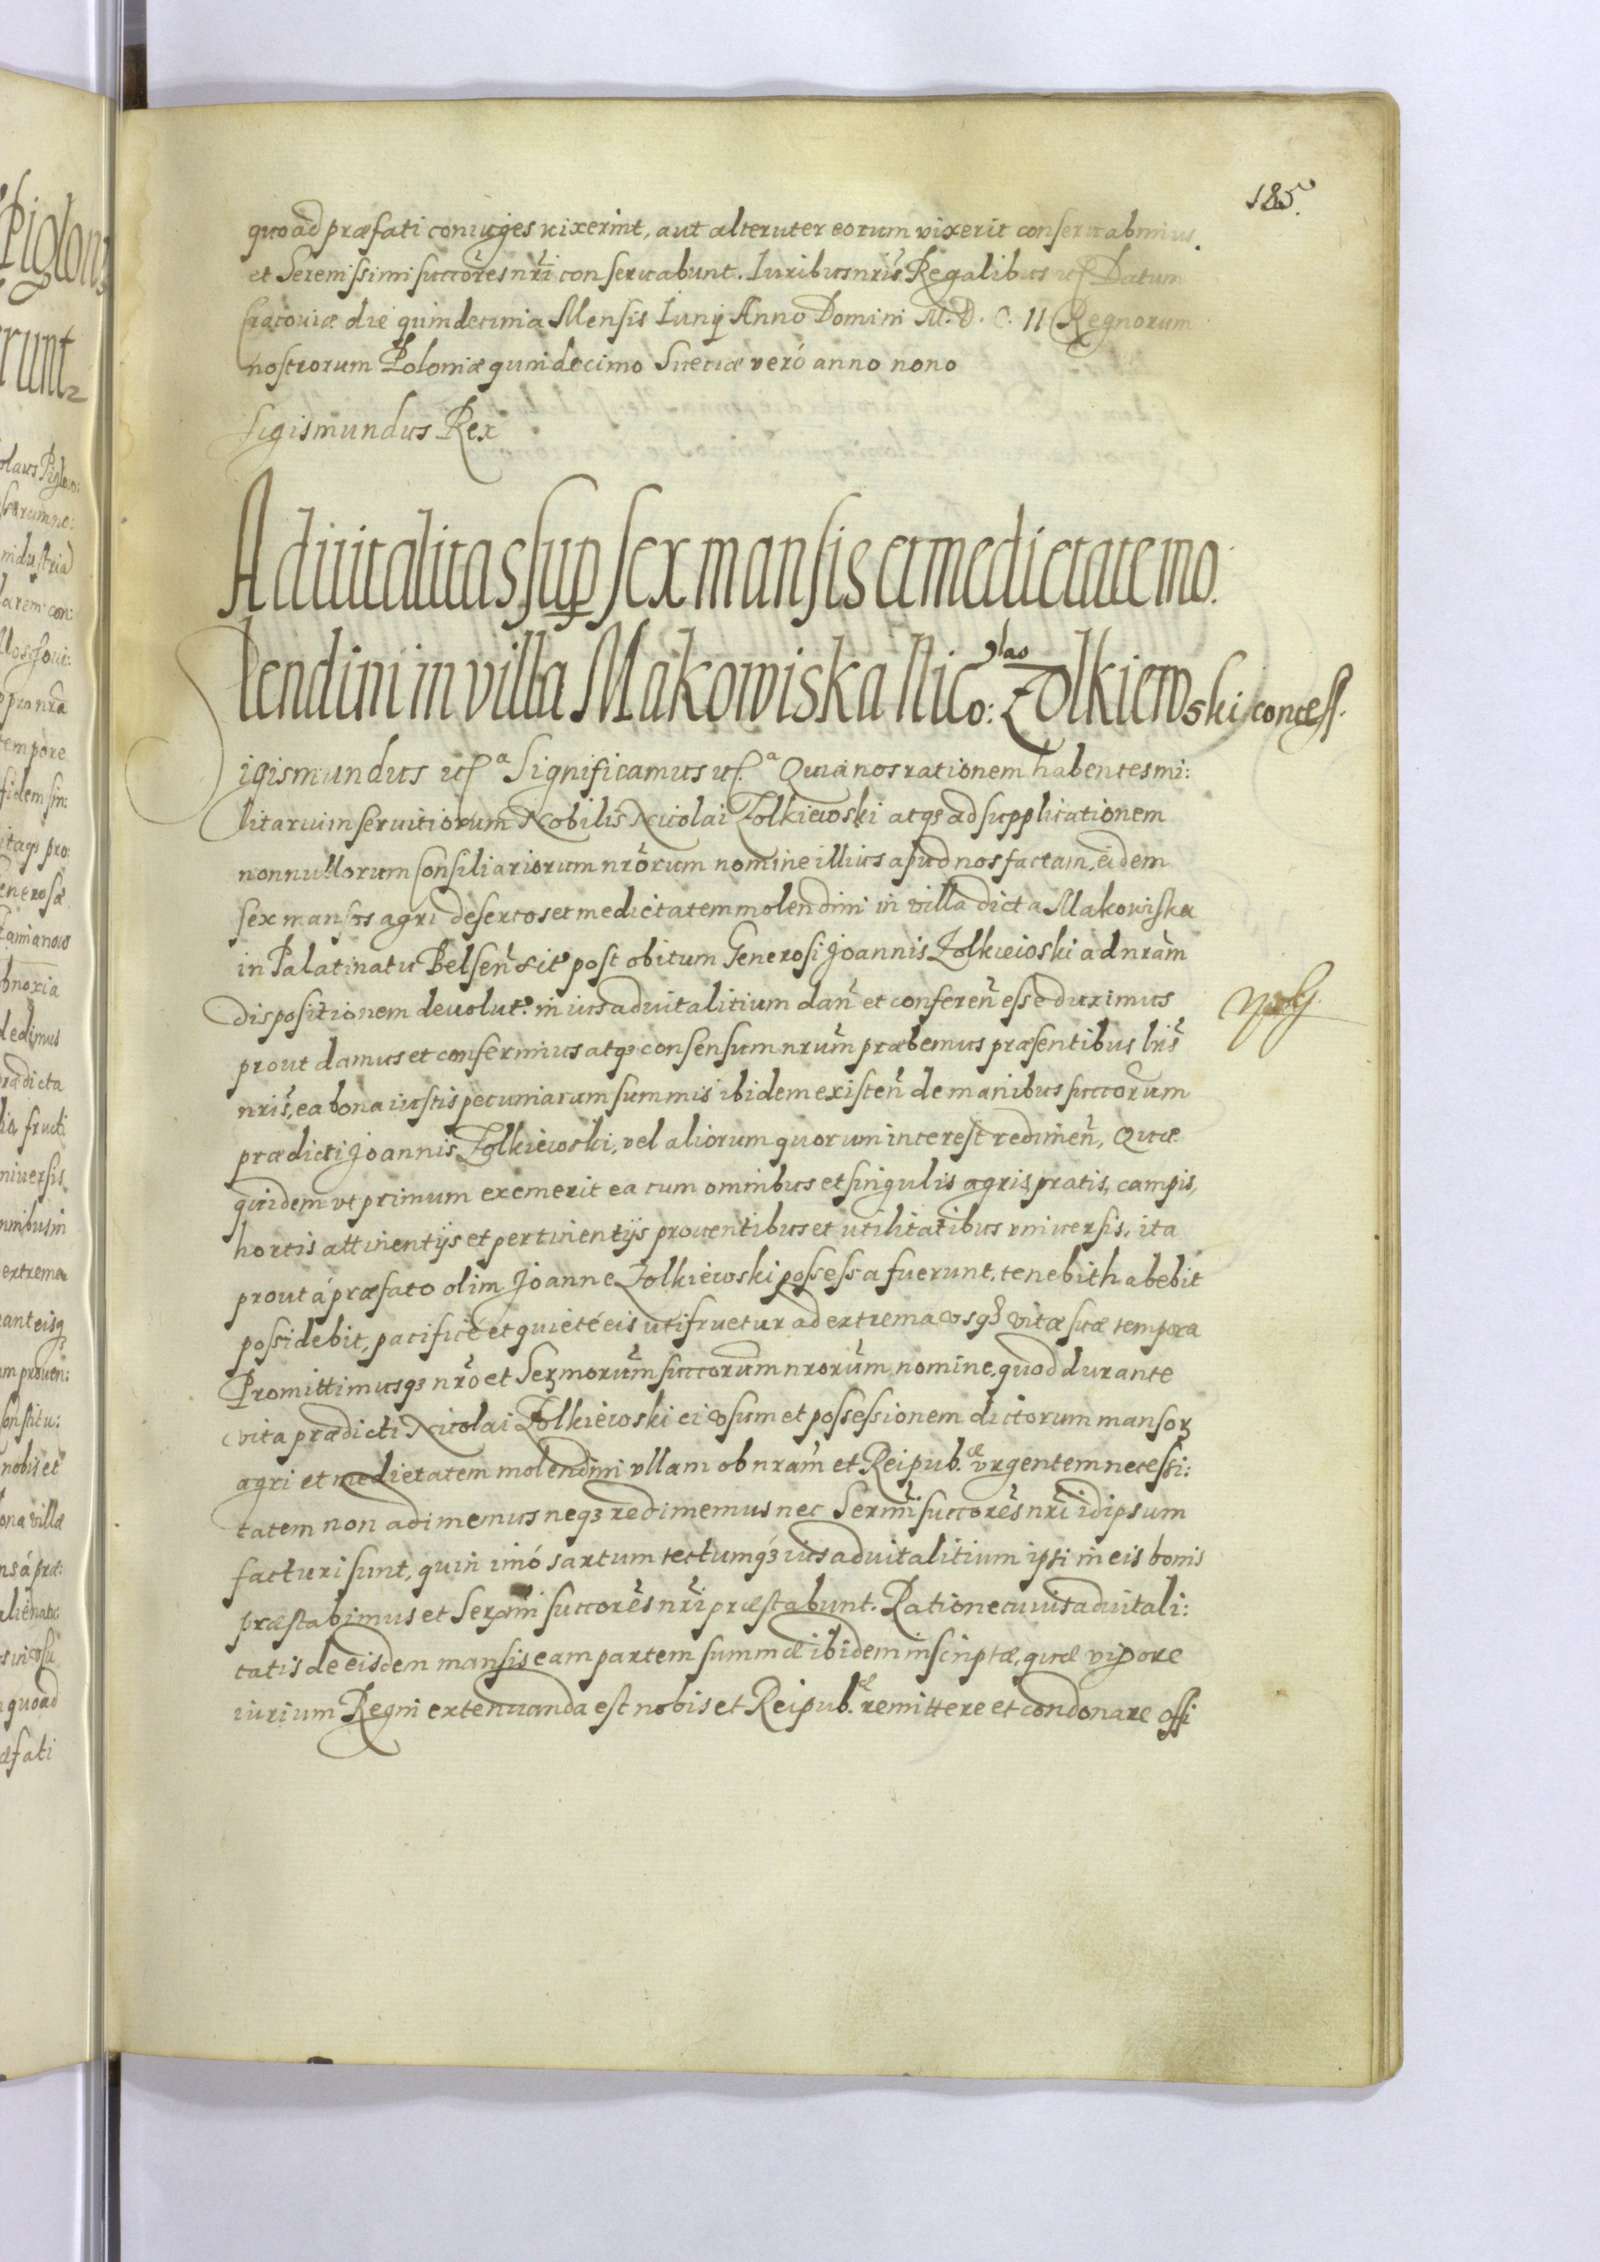 185.
quoad præfati coniuges vixerint, aut alteruter eorum vixerit conseruabimus
et Serenissimi succōres nr̄i conseruabunt. Iuribus nrīs Regalibus etc Datum
Cracoviæ die quindecima Mensis Iunij Anno Domini M. D. C. II Regnorum
nostrorum Poloniæ quindecimo Sueciæ veró anno nono
Sigismundus Rex
Aduitalitas sup sex mansis et medietate mo:
lendini in villa Makowiska Nico:lao Zolkiewski concess.
Sigismundus etc a Significamus etc. a Quia nos rationem habentes mi:
litarium seruitiorum Nobilis Nicolai Zolkiewski atq3 ad supplicationem
nonnullorum Consiliariorum nrōrum nomine illius apud nos factam, eidem
sex mansos agri desertos et medietatem molendini in villa dicta Makowiska
in Palatinatu Belseñ sit post obitum Generosi Joannis Zolkiewski ad nrām
dispositionem deuolut. in ius aduitalitium dañ et confereñ esse duximus
prout damus et conferimus atq3 consensum nrūm præbemus præsentibus lrīs
nrīs, ea bona iustis pecuniarum summis ibidem existeñ de manibus succōrum
prædicti Joannis Zolkiewski, vel aliorum quorum interest redimeñ, Quæ
quidem vt primum exemerit ea cum omnibus et singulis agris, pratis, campis,
hortis attinentijs et pertinentijs prouentibus et utilitatibus vniuersis, ita
prout á præfato olim Joanne Zolkiewski possessa fuerunt, tenebit habebit
possidebit, pacificé et quieté eis utifruetur ad extrema vsq3 vitæ suæ tempora
Promittimusq3 nrō et Sermorūm succōrum nrorūm nomine, quod durante
vita prædicti Nicolai Zolkiewski ei vsum et possessionem dictorum mansor̃
agri et medietatem molendini vllam ob nrām et Reipub.æ vrgentem necessi:
tatem non adimemus neq3 redimemus nec Sermī succorēs nrī id ipsum
facturi sunt, quin imó sartum tectumq3 ius aduitalitium ipsi in eis bonis
præstabimus et Sermī succorēs nrī præstabunt. Ratione cuius aduitali:
tatis de eisdem mansis eam partem summæ ibidem inscriptæ, quæ vigore
iurium Regni extenuanda est nobis et Reipub.æ remittere et condonare offi